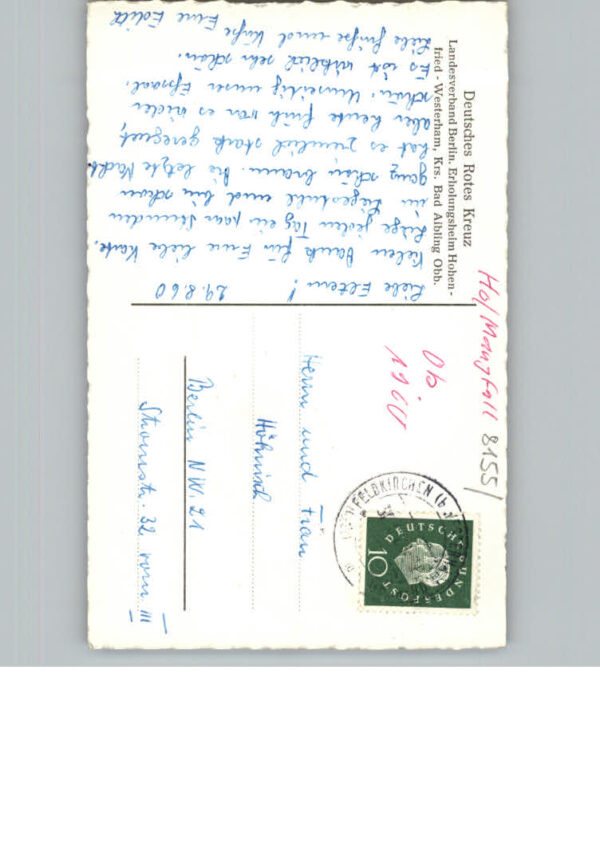 Deutsches Rotes Kreuz
Landesverband Berlin. Erholungsheim Hohen-
fried - Westerham, Krs. Bad Aibling Obb.
29.8.60
Liebe Eltern!
Vielen Dank für Eure liebe Karte.
Liege jeden Tag ein paar Stunden
im Liegestuhl und bin schon
ganz schön braun. Die letzte Nacht
hat es ziemlich stark geregnet,
aber heute früh war es wieder
schön. Umseitig unser Eßsaal.
Es ist wirklich sehr schön.
Liebe Grüße und Küße
Eure Edith
Hol Mangfall 8155/
Ob.
1960
FELDKIRCHEN
DEUTSCHE BUNDESPOST
10
Herrn und Frau
Höhnisch
Berlin NW. 21
Stromstr. 32 vorn III